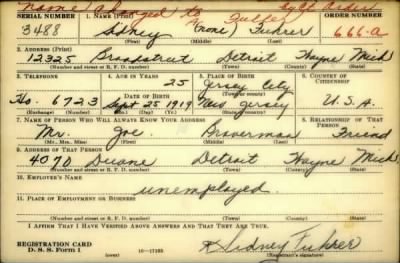 name changed to Fuller by Ct Order
SERIAL NUMBER 1. NAME (Print) ORDER NUMBER
3488 Sidney (none) Fuhrer 666-a
(First) (Middle) (Last)
2. ADDRESS (Print)
12325 Broadstreet Detroit Wayne Mich
(Number and street or R. F. D. number) (Town) (County) (State)
3. TELEPHONE 4. AGE IN YEARS 5. PLACE OF BIRTH 6. COUNTRY OF CITIZENSHIP
25 Jersey City
Ho. 6723 Sept 25 1919 New Jersey U.S.A.
(Exchange) (Number) (Mo.) (Day) (Yr.) (State or country)
7. NAME OF PERSON WHO WILL ALWAYS KNOW YOUR ADDRESS 8. RELATIONSHIP OF THAT PERSON
Mr. Joe Braverman Friend
(Mr., Mrs., Miss) (First) (Middle) (Last)
9. ADDRESS OF THAT PERSON
4090 Duane Detroit Wayne Mich.
(Number and street or R. F. D. number) (Town) (County) (State)
10. EMPLOYER'S NAME
unemployed
11. PLACE OF EMPLOYMENT OR BUSINESS
(Number and street or R. F. D. number) (Town) (County) (State)
I AFFIRM THAT I HAVE VERIFIED ABOVE ANSWERS AND THAT THEY ARE TRUE.
REGISTRATION CARD
D. S. S. Form 1 (over) Sidney Fuhrer
(Registrant's signature)